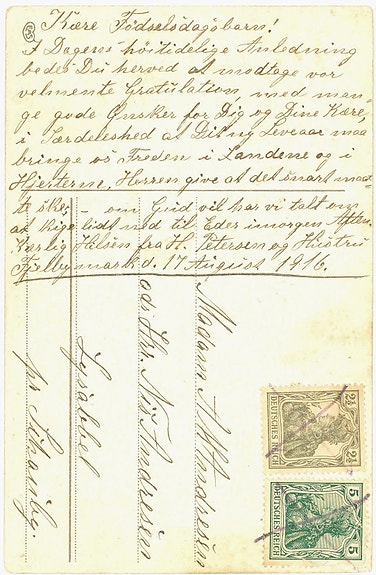 Kære Fødselsdagsbarn!
I Dagens høitidelige Anledning
bedes Du herved at modtage vor
velmente Gratulation, med man-
ge gode Ønsker for Dig og Dine Kære,
i Særdeleshed at Dit ny Leveaar maa
bringe os Freden i Landene og i
Hjerterne, Herren give at det snart maat-
te ske; - om Gud vil har vi talt om
at kige lidt ned til Eder imorgen Aften.
Kærlig Hilsen fra H. Petersen og Hustru
Fjelbymark d. 17 August 1916.
Madam A M Andresen
adr. Hr. Nis Andresen
Lysabbel
pr Schauby.
2½ 2½
DEUTSCHES REICH
5
DEUTSCHES REICH